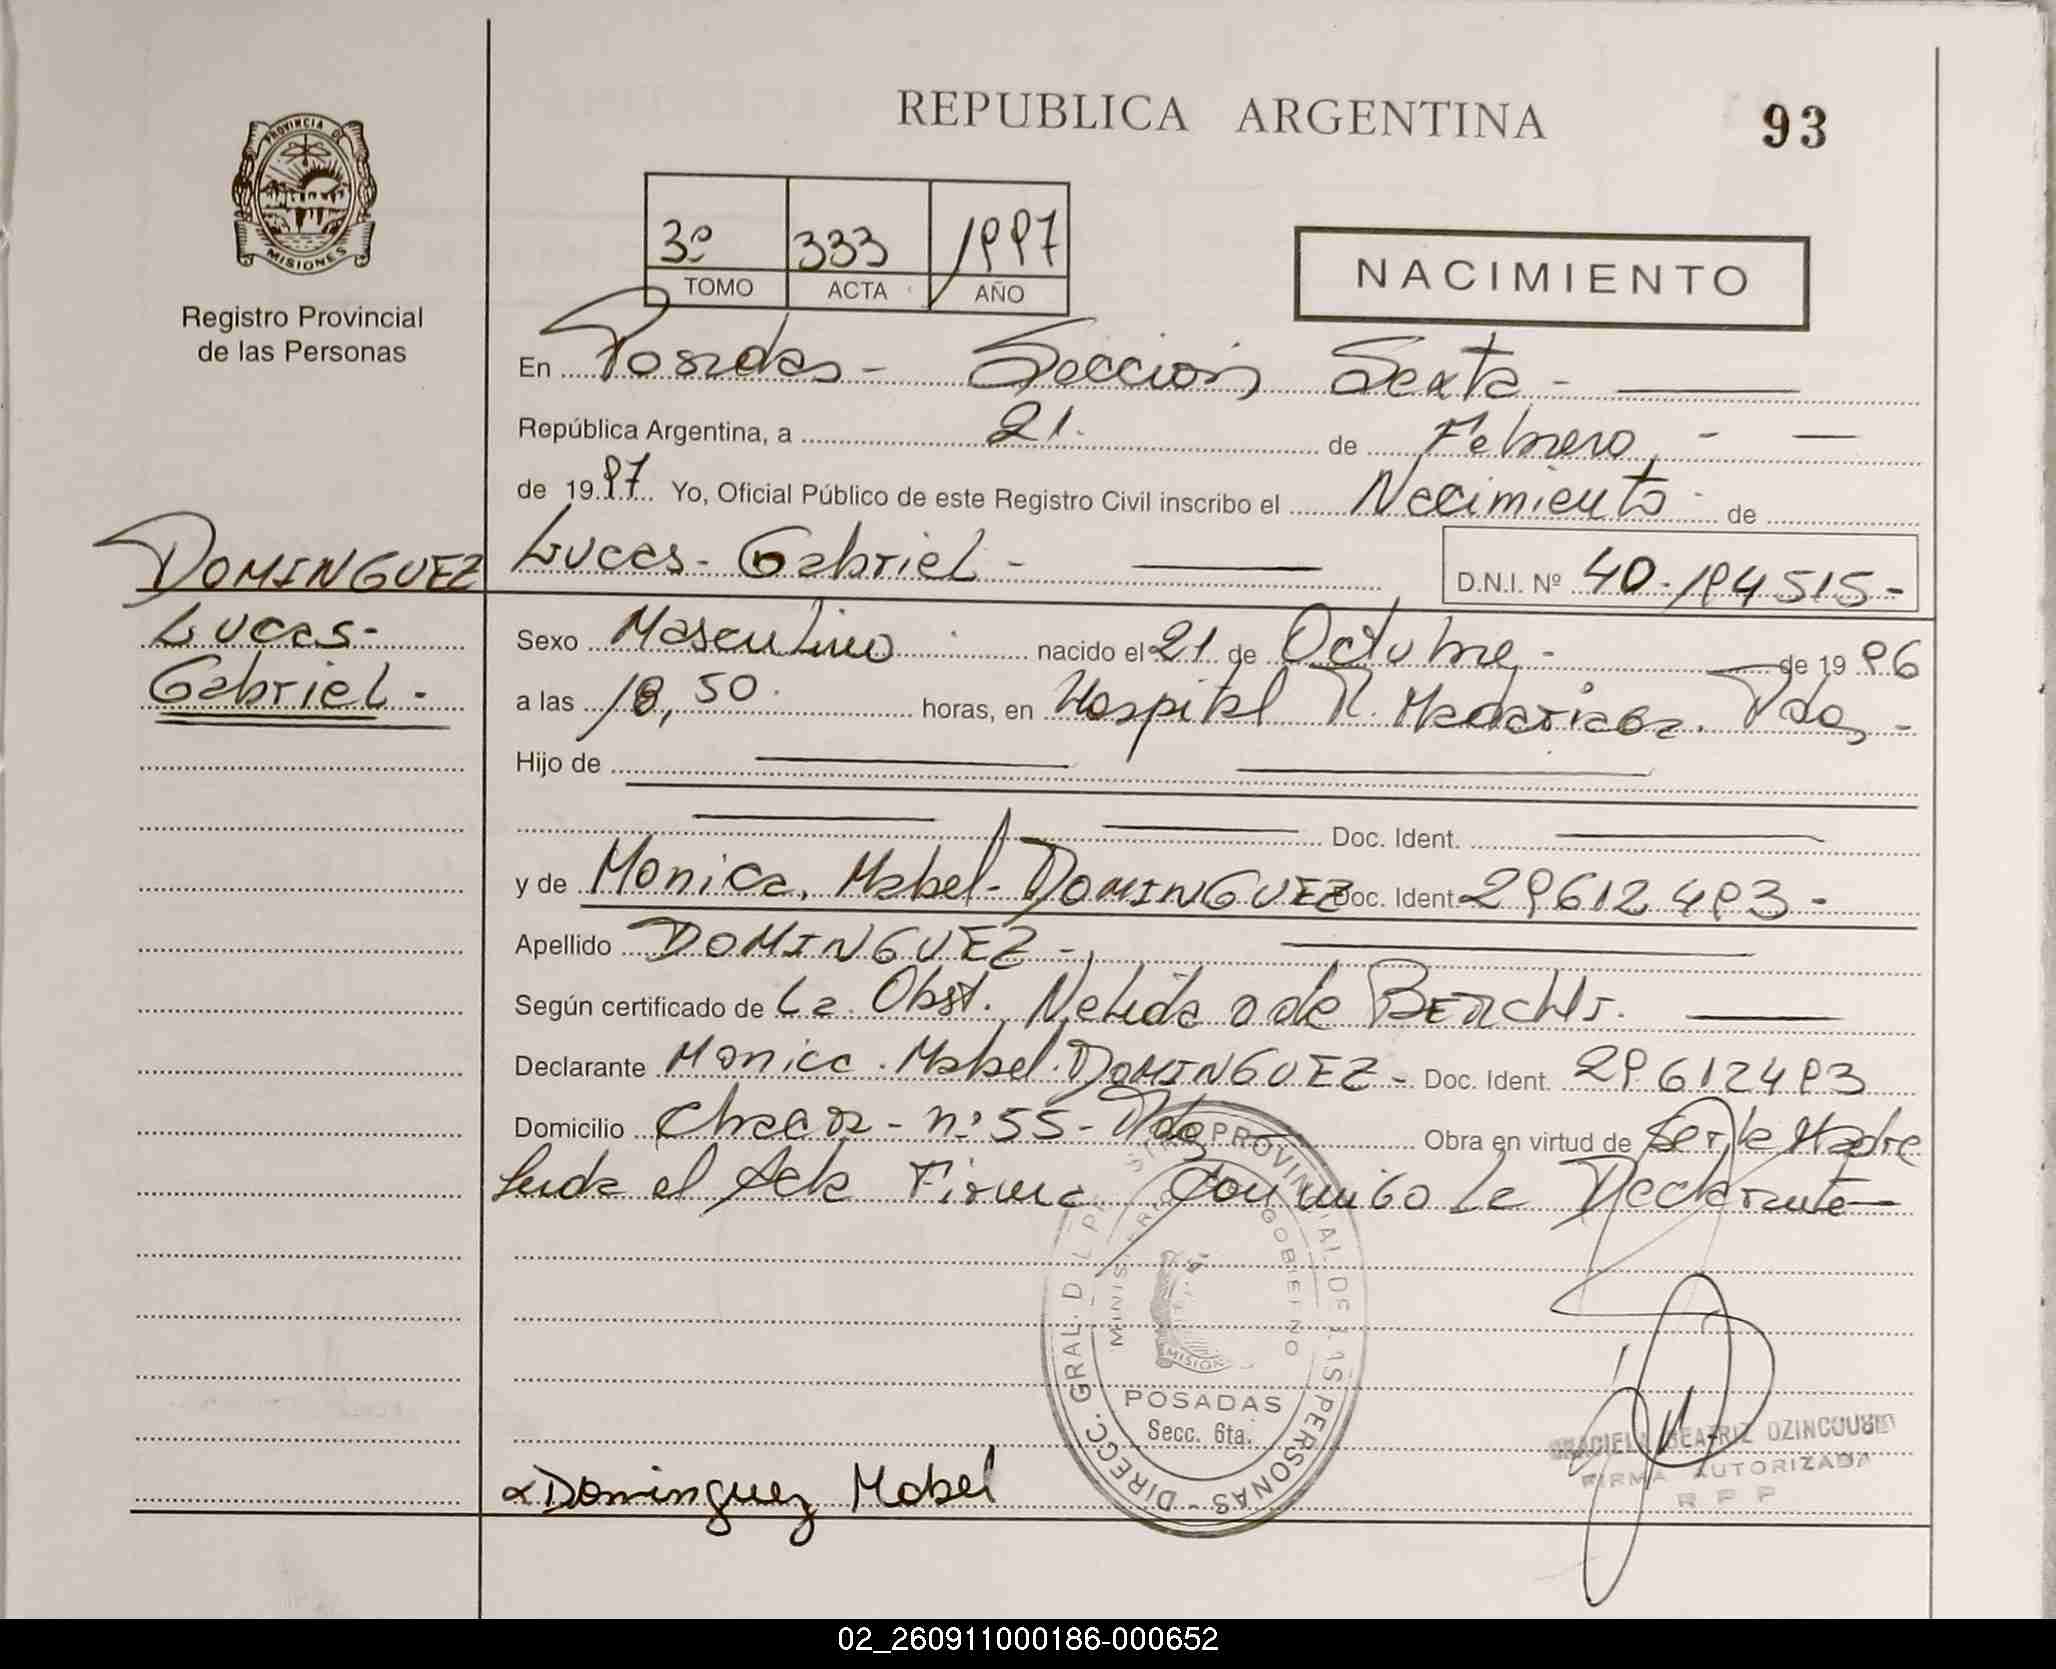 REPUBLICA ARGENTINA
93
PROVINCIA DE
MISIONES
Registro Provincial
de las Personas
3º 333 1997
TOMO ACTA AÑO
NACIMIENTO
En Posadas - Sección Sexta -
República Argentina, a 21. de Febrero -
de 1997 Yo, Oficial Público de este Registro Civil inscribo el Nacimiento de
Lucas - Gabriel -
D.N.I. Nº 40.194515-
DOMINGUEZ
Lucas -
Gabriel -
Sexo Masculino nacido el 21 de Octubre - de 1996
a las 18,50 horas, en Hospital R. Madariaga. Pdas -
Hijo de
Doc. Ident.
y de Monica. Mabel - DOMINGUEZ Doc. Ident. 29612493 -
Apellido DOMINGUEZ -
Según certificado de La Obst. Nelida de
Declarante Monica. Mabel. DOMINGUEZ - Doc. Ident. 29612493
Domicilio Chacra - nº 55 - Pdas Obra en virtud de Ser la Madre
Leida el Acta Firma Conmigo La Declarante
DIRECC. GRAL. DEL PROVINCIAL DE LAS PERSONAS
MINISTERIO GOBIERNO
MISIONES
POSADAS
Secc. 6ta.
GRACIELA BEATRIZ
FIRMA AUTORIZADA
R P P
Dominguez Mabel
02_260911000186-000652